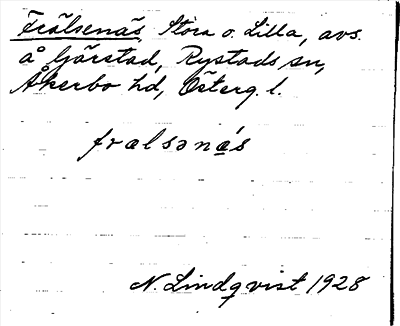 Frälsenäs Stora o. Lilla, avs.
å Gärstad, Rystads sn,
Åkerbo hd, Österg. l.
frɑlsənɑ́s
N. Lindqvist 1928